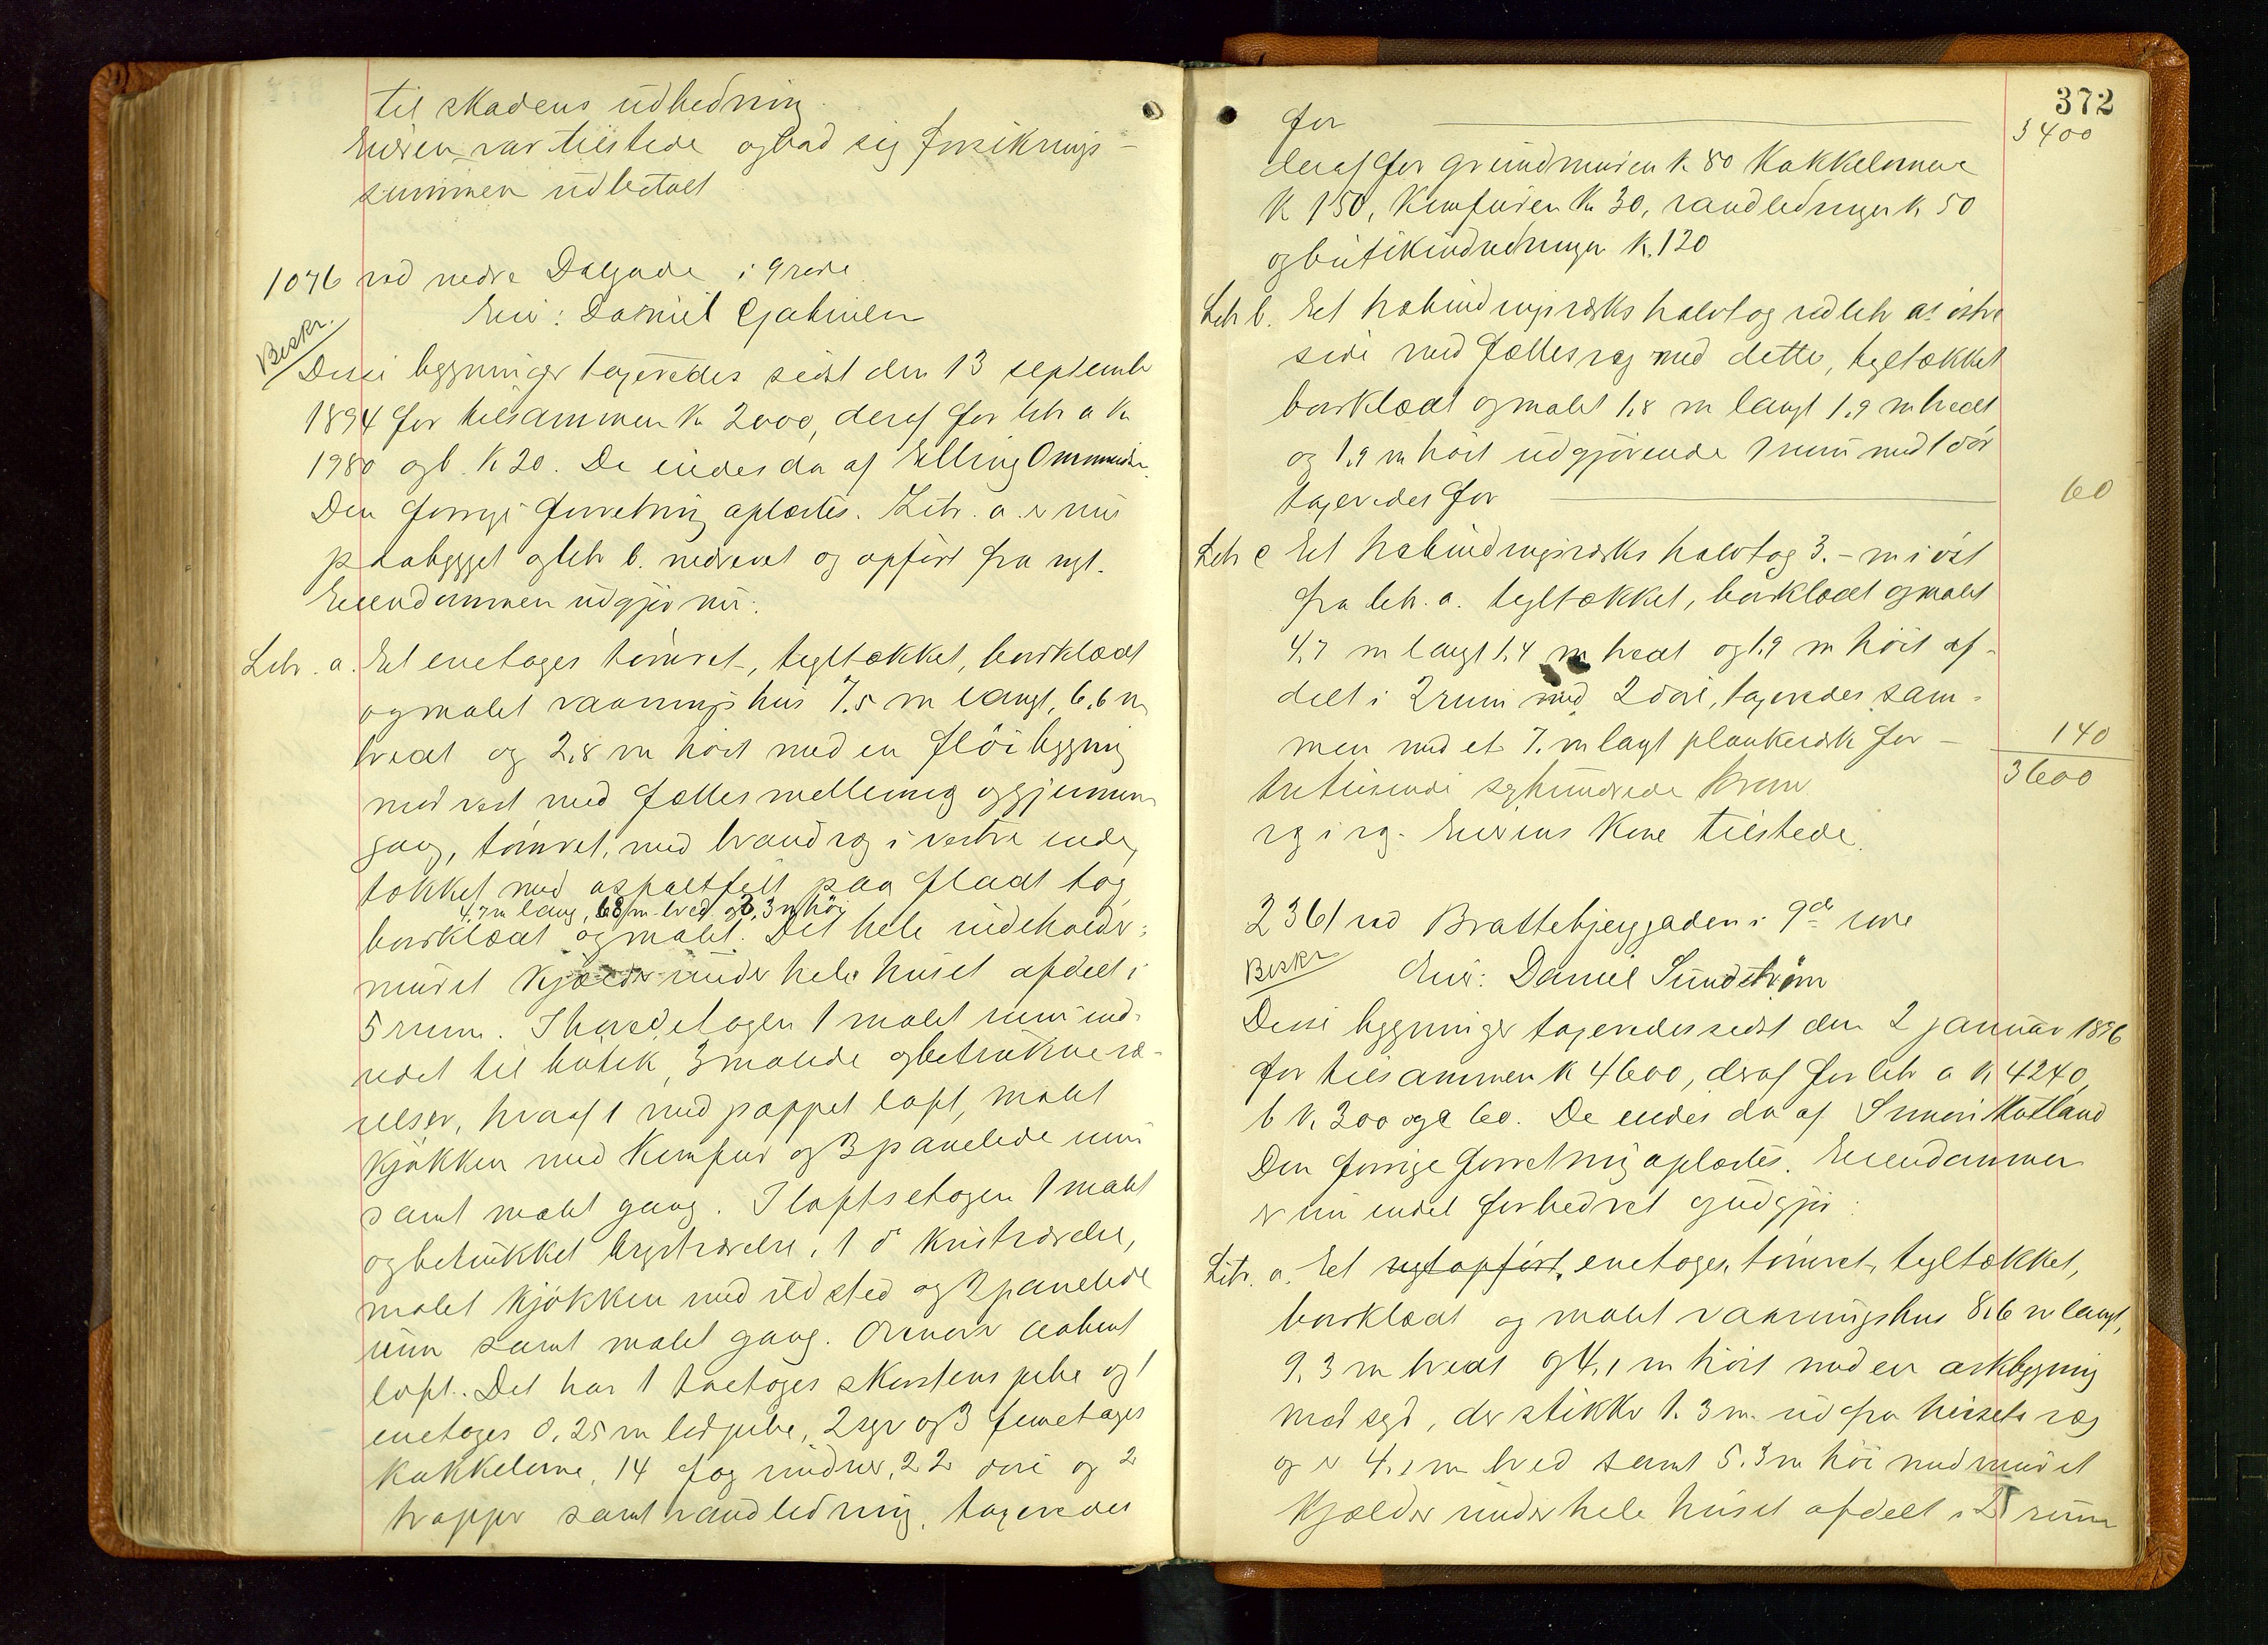 til skadens udbedring.
Eieren var tilstede og bad sig forsikrings-
summen udbetalt
1076 ved nedre Dalgade i 9 rode
Eier: Daniel Gabrielsen
Beskr.
Disse bygninger taxeredes sidst den 13 septembr
1894 for tilsammen Kr 2000, deraf for litr a Kr
1980 og b. K 20. De eiedes da af Elling Ommundsen.
Den forrige forretning oplæstes. Litr. a. er nu
paabygget og litr b. nedrevet og opført fra nyt.
Eiendommen udgjør nu:
Litr. a. Et enetages tømret, tegltækket, bordklædt
og malet vaaningshus 7.5 m langt, 6.6 m
bredt og 2.8 m høit med en fløibygning
mod vest med fælles mellemvæg og gjennem
gang, tømret, med brandvæg i vestre ende,
tækket med asphaltfilt paa fladt tag,
4.7 m lang, 6.8 m bred og 3.3 m høi
bordklædt og malet. Det hele indeholder:
muret kjælder under hele huset afdelt i
5 rum. I hovedetagen 1 malet rum ind-
redet til butik, 3 malede og betrukne væ-
relser, hvoraf 1 med pappet loft, malet
kjøkken med komfur og 3 panelede rum
samt malet gang. I loftsetagen 1 malet
og betrukket brystværelse, 1 do kvistværelse,
malet kjøkken med ildsted og 2 panelede
rum samt malet gang. Ovenover aabent
loft. Det har 1 toetages skorstenspibe og 1
enetages 0.25 m ledpibe, 2 syv og 3 femetages
kakkelovne, 14 fag vinduer, 22 døre og 2
trapper samt vandledning, taxeredes
372
for 3400
deraf for grundmuren K. 80 Kakkelovnene
K 150, Komfuren Kr 30, vandledningen K. 50
og butikindredningen K. 120
Litr b. Et halvbindingsværks halvtag ved litr as østre
side med fælles væg med dette, tegltækket
bordklædt og malet 1.8 m langt 1.9 m bredt
og 1.9 m høit udgjørende 1 rum med 1 dør
taxeredes for 60
Litr c Et halvbindingsværks halvtag 3.- m i øst
fra litr. a. tegltækket, bordklædt og malet
4.7 m langt 1.4 m bredt og 1.9 m høit af-
delt i 2 rum med 2 døre, taxeredes sam-
men med et 7. m langt plankeværk for - 140
tretusende sexhundrede kroner 3600
Eierens Kone tilstede.
2361 ved Brattebjerggaden i 9de rode
Beskr
Eier: Daniel Sundstrøm
Disse bygninger taxeredes sidst den 2 januar 1896
for tilsammen K 4600, deraf for litr a K. 4240,
b K. 300 og c 60. De eiedes da af Simon Hatland
Den forrige forretning oplæstes. Eiendommen
er nu endel forbedret og udgjør:
Litr. a. Et nyt opført, enetages, tømret, tegltækket,
bordklædt og malet vaaningshus 8.6 m langt,
9.3 m bredt og 4.1 m høit med en arkbygning
mod syd, der stikker 1.3 m. ud fra husets væg
og er 4.1 m bred samt 5.3 m høi med muret
kjælder under hele huset afdelt i 2 rum